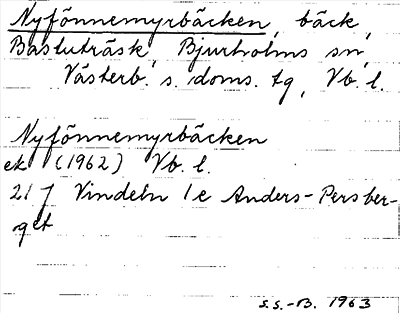 Nyfönnemyrbäcken, bäck,
Bastuträsk, Bjurholms sn,
Västerb. s. doms. tg, Vb. l.
Nyfönnemyrbäcken
ek (1962) Vb. l.
21 J Vindeln 1e Anders-Persber-
get
S.S.-B. 1963